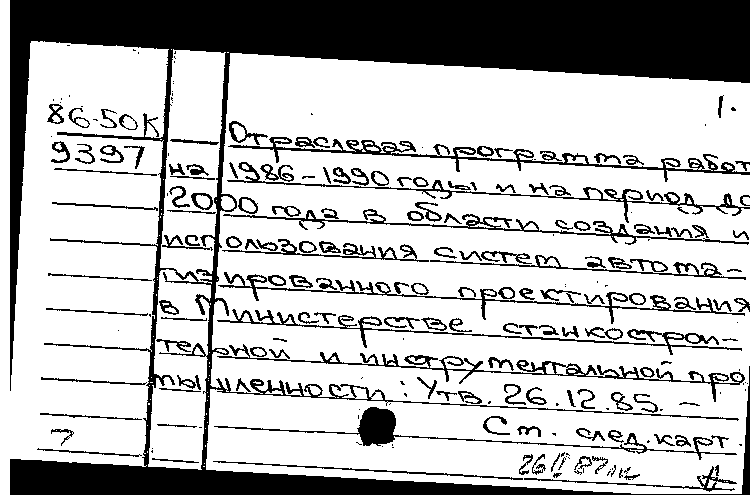 1.
86-50К
9397
Отраслевая программа работ
на 1986-1990 годы и на период до
2000 года в области создания и
использования систем автома-
тизированного проектирования
в Министерстве станкострои-
тельной и инструментальной про
мышленности: Утв. 26.12.85. -
Ст. след. карт.